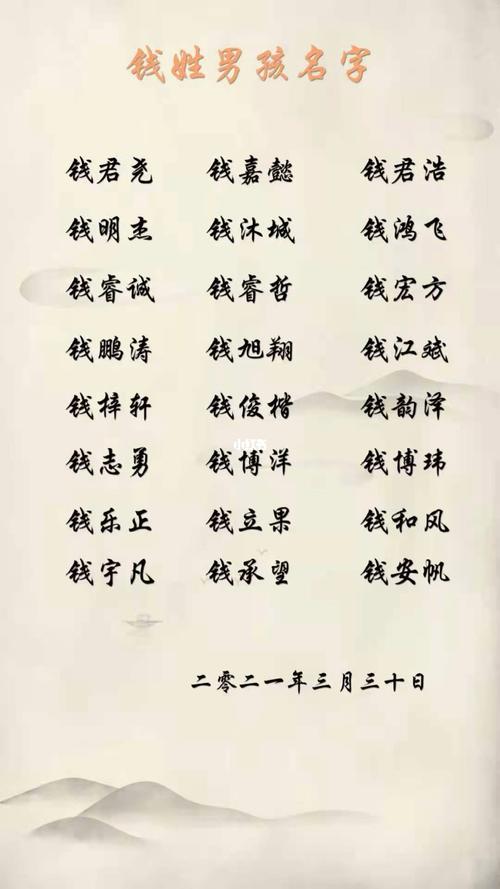 钱姓男孩名字
钱君尧 钱嘉懿 钱君浩
钱明杰 钱沐城 钱鸿飞
钱睿诚 钱睿哲 钱宏方
钱鹏涛 钱旭翔 钱江斌
钱梓轩 钱俊楷 钱韵泽
小红书
钱志勇 钱博洋 钱博玮
钱乐正 钱立果 钱和风
钱宇凡 钱承望 钱安帆
二零二一年三月三十日